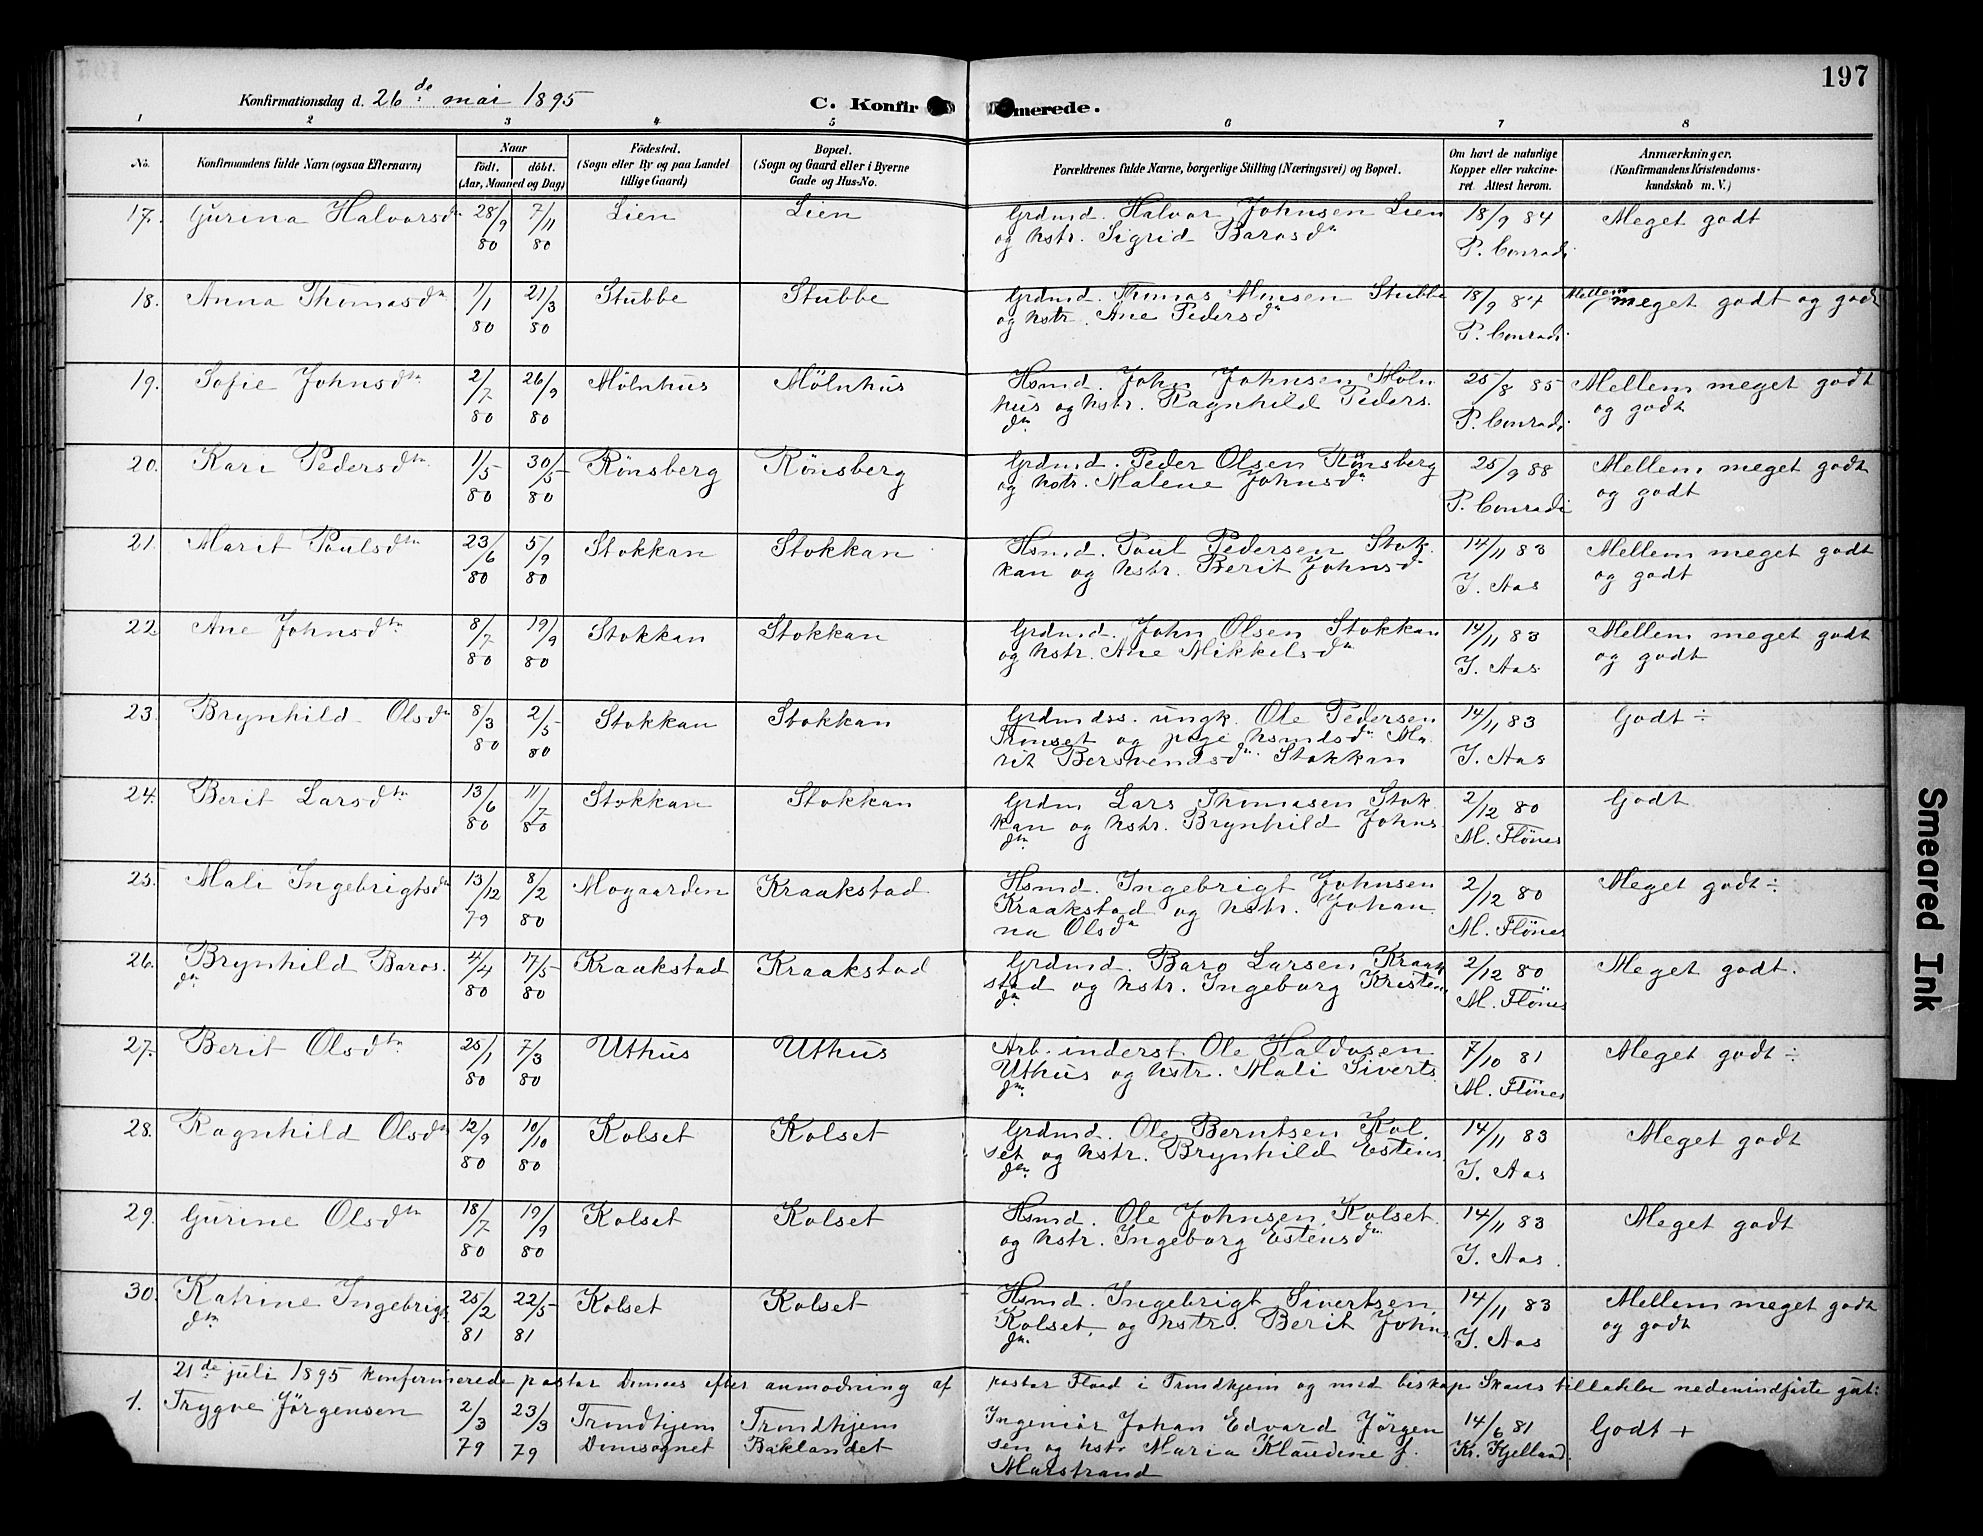 197
Konfirmationsdag d. 26de mai 1895 C. Konfirmerede.
1 2 3 4 5 6 7 8
No. Konfirmandens fulde Navn (ogsaa Efternavn) Naar født. døbt. (Aar, Maaned og Dag) Fødested. (Sogn eller By og paa Landet tillige Gaard) Bopæl. (Sogn og Gaard eller i Byerne Gade og Hus-No.) Forældrenes fulde Navne, borgerlige Stilling (Næringsvei) og Bopæl. Om havt de naturlige Kopper eller vakcineret. Attest herom. Anmærkninger. (Konfirmandens Kristendomskundskab m. V.)
17. Gurina Halvorsdtr 28/9 80 7/11 80 Lien Lien Grdmd. Halvor Johnsen Lien 18/9 84 Meget godt
og hstr. Sigrid Barosdtr P. Conradi
18. Anna Thomasdtr 1/1 80 21/3 80 Stubbe Stubbe Grdmd. Thomas Monsen Stubbe 18/9 84 Mellem meget godt og godt
og hstr. Ane Pedersdtr P. Conradi
19. Sofie Johnsdtr 2/7 80 26/9 80 Mölnhus Mölnhus Hsmd. John Johnsen Möln 25/8 85 Mellem meget godt
hus og hstr. Ragnhild Peders. P. Conradi og godt
dtr
20. Kari Pedersdtr. 1/5 80 30/5 80 Rönsberg Rönsberg Grdmd. Peder Olsen Rönsberg 25/9 88 Mellem meget godt
og hstr. Malene Johnsdtr P. Conradi og godt
21. Marit Poulsdtr 23/6 80 5/9 80 Stokkan Stokkan Hsmd. Poul Pedersen Stok. 14/11 83 Mellem meget godt
kan og hstr. Berit Johnsd. J. Aas og godt
22. Ane Johnsdtr. 8/7 80 19/9 80 Stokkan Stokkan Grdmd. John Olsen Stokkan 14/11 83 Mellem meget godt
og hstr. Ane Mikkelsdtr J. Aas og godt
23. Brynhild Olsdtr 8/3 80 2/5 80 Stokkan Stokkan Grdmdss. ungk. Ole Pedersen 14/11 83 Godt ÷
og pige hsmdsdtr Ma.
rit Bersvendsdtr Stokkan J. Aas
24. Berit Larsdtr 13/6 80 11/7 80 Stokkan Stokkan Grdm Lars Thomasen Stok 2/12 80 Godt
kan og hstr. Brynhild Johns. M. Flönes
dtr
25. Mali Ingebrigtsdtr 13/12 79 8/2 80 Mogaarden Kraakstad Hsmd. Ingebrigt Johnsen 2/12 80 Meget godt ÷
Kraakstad og hstr. Johan. M. Flönes
na Olsdtr
26. Brynhild Baros. 4/4 80 17/5 80 Kraakstad Kraakstad Grdmd. Baro Larsen Kraak 2/12 80 Meget godt.
dtr stad og hstr. Ingeborg Kristen M. Flönes
dtr
27. Berit Olsdtr. 25/1 80 7/3 80 Uthus Uthus Arb. inderst. Ole Haldosen 7/10 81 Meget godt ÷
Uthus og hstr. Mali Siverts. M. Flönes
dtr
28. Ragnhild Olsdtr 12/9 80 10/10 80 Kolset Kolset Grdmd. Ole Berntsen Kol. 14/11 83 Meget godt
set og hstr. Brynhild Estens. J. Aas
dtr
29. Gurine Olsdtr 18/7 80 19/9 80 Kolset Kolset Hsmd. Ole Johnsen Kolset. 14/11 83 Meget godt
og hstr. Ingeborg Estensdtr J. Aas.
30. Katrine Ingebrigts. 25/2 81 22/5 81 Kolset Kolset Hsmd. Ingebrigt Sivertsen 14/11 83 Mellem meget godt
dtr Kolset, og hstr. Berit Johns J. Aas og godt
dtr
21de juli 1895 konfirmerede pastor efter anmodning af pastor i Trondhjem og med biskop tilladelse nedenindførte gut:
1. Trygve Jörgensen 2/3 79 23/3 79 Trondhjem Trondhjem Ingeniör Johan Edvard Jörgen 14/6 81 Godt +
Domsognet Baklandet sen og hstr Maria Klaudine f. Kr. Kjelland.
Marstrand
Smeared Ink